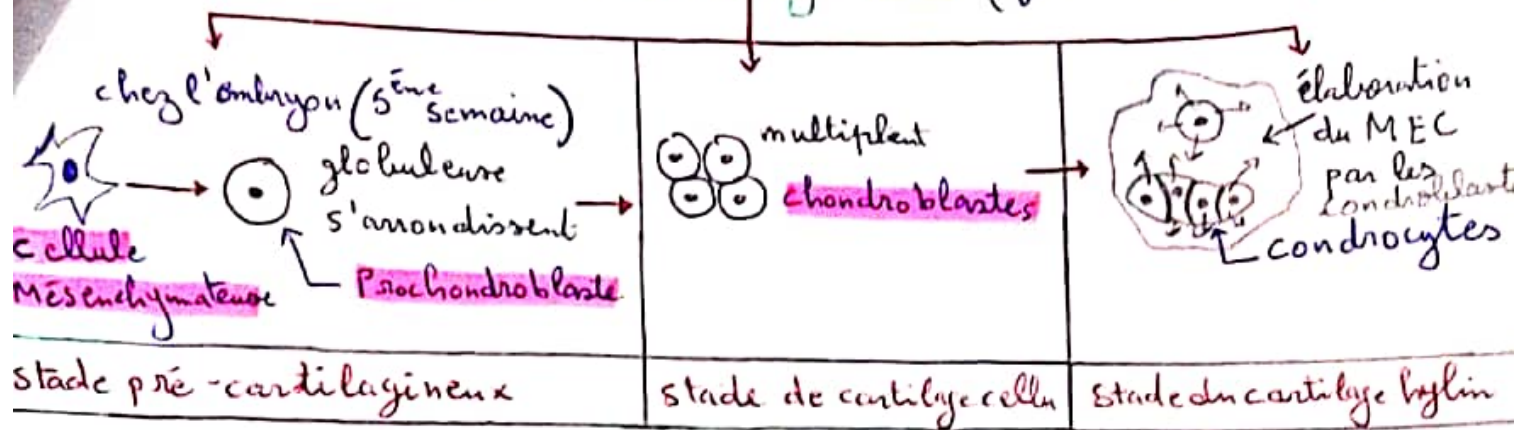 chez l'embryon (5ème semaine)
globuleuse
s'arrondissent
cellule
Mésenchymateuse
Prochondroblaste
multiplent
chondroblastes
élaboration
du MEC
par les
condroblaste
condrocytes
stade pré-cartilagineux
stade de cartilage cellu
stade du cartilage hylin